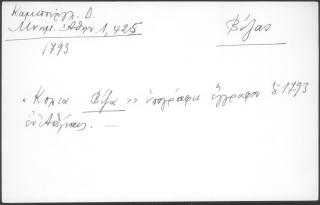 Καμπούρογλ. Δ.
Μνημ. Αθην. 1, 425
1793
Βίζας
"Κολια Βίζα" υπογράφει έγγραφον 1793
εν Αθήναις. —